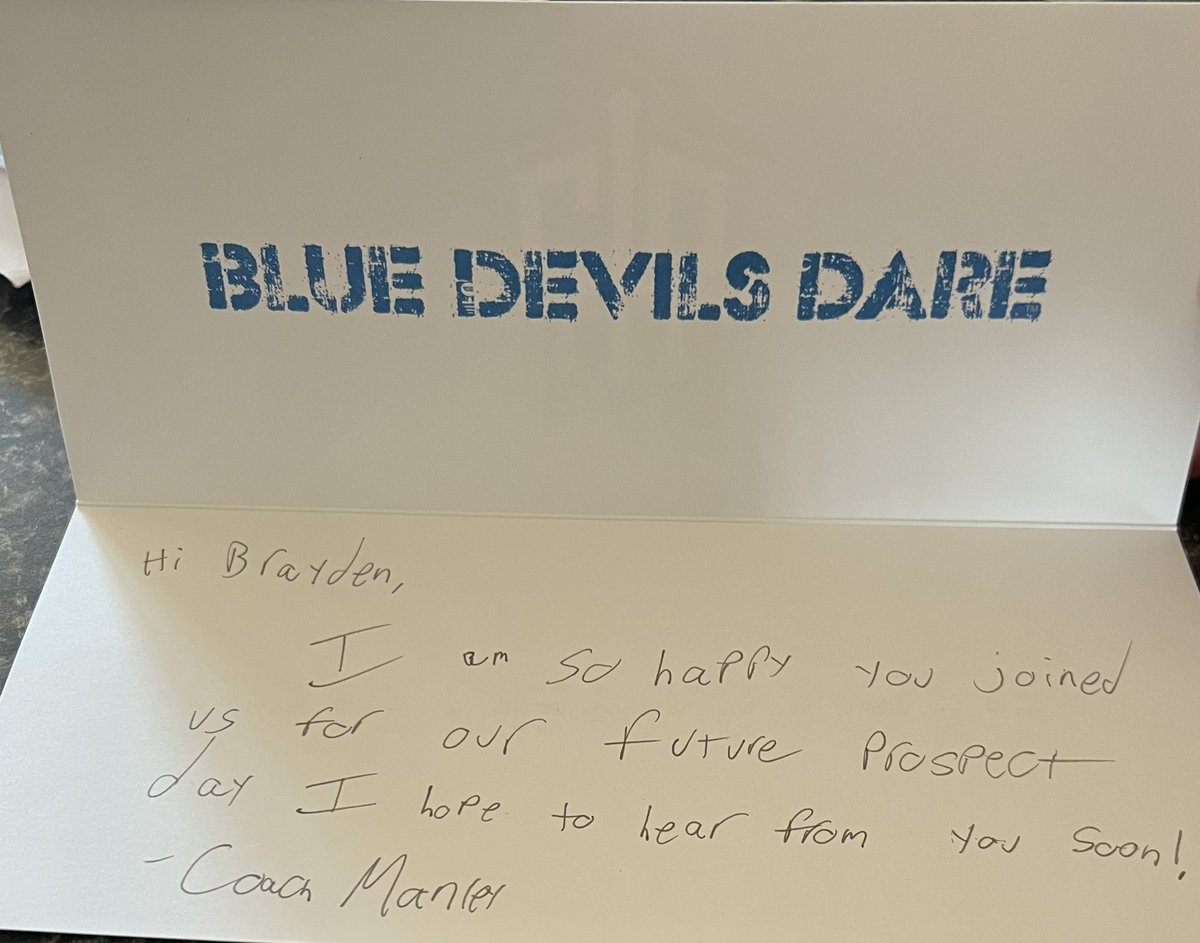 BLUE DEVILS DARE
Hi Brayden,
I am so happy you joined
us for our future prospect
day I hope to hear from you soon!
- Coach Manley